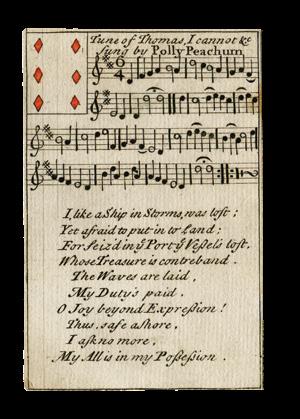 Tune of Thomas, I cannot &c
Sung by Polly Peachum
6
4
I, like a Ship in Storms, was tost;
Yet afraid to put in to Land;
For seiz'd in yͤ Port yͤ Veſsel's lost,
Whose Treasure is contreband.
The Waves are laid,
My Duty's paid.
O Joy beyond Expreſsion!
Thus, safe ashore,
I ask no more,
My All is in my Poſseſsion.